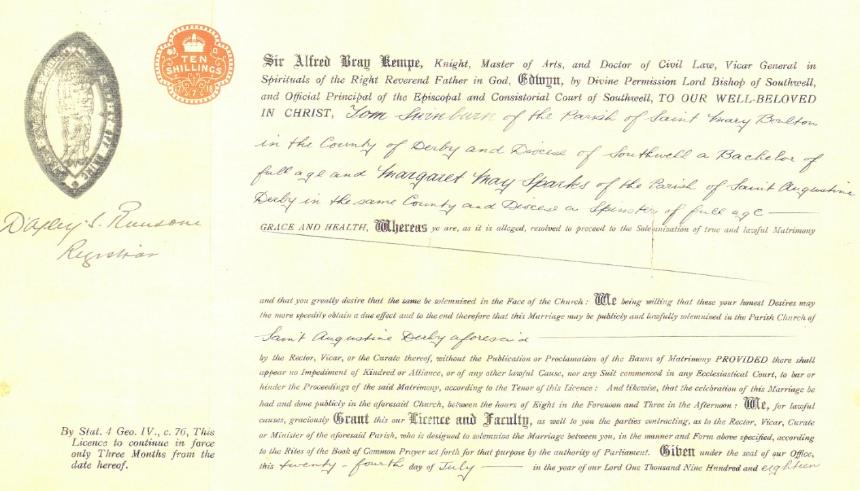 TEN
SHILLINGS
Sir Alfred Bray Kempe, Knight, Master of Arts, and Doctor of Civil Law, Vicar General in
Spirituals of the Right Reverend Father in God, Edwyn, by Divine Permission Lord Bishop of Southwell,
and Official Principal of the Episcopal and Consistorial Court of Southwell, TO OUR WELL-BELOVED
IN CHRIST, Tom Swinburn of the Parish of Saint Mary Boulton
in the County of Derby and Diocese of Southwell a Bachelor of
full age and Margaret May Sparks of the Parish of Saint Augustine
Derby in the same County and Diocese a Spinster of full age
GRACE AND HEALTH, Whereas ye are, as it is alleged, resolved to proceed to the Solemnisation of true and lawful Matrimony
and that you greatly desire that the same be solemnised in the Face of the Church: We being willing that these your honest Desires may
the more speedily obtain a due effect and to the end therefore that this Marriage may be publicly and lawfully solemnised in the Parish Church of
Saint Augustine Derby aforesaid
by the Rector, Vicar, or the Curate thereof, without the Publication or Proclamation of the Banns of Matrimony PROVIDED there shall
appear no Impediment of Kindred or Alliance, or of any other lawful Cause, nor any Suit commenced in any Ecclesiastical Court, to bar or
hinder the Proceedings of the said Matrimony, according to the Tenor of this Licence: And likewise, that the celebration of this Marriage be
had and done publicly in the aforesaid Church, between the hours of Eight in the Forenoon and Three in the Afternoon: We, for lawful
causes, graciously Grant this our Licence and Faculty, as well to you the parties contracting, as to the Rector, Vicar, Curate
or Minister of the aforesaid Parish, who is designed to solemnise the Marriage between you, in the manner and Form above specified, according
to the Rites of the Book of Common Prayer set forth for that purpose by the authority of Parliament. Given under the seal of our Office,
this twenty-fourth day of July in the year of our Lord One Thousand Nine Hundred and eighteen
Registrar
By Stat. 4 Geo. IV., c. 76, This
Licence to continue in force
only Three Months from the
date hereof.